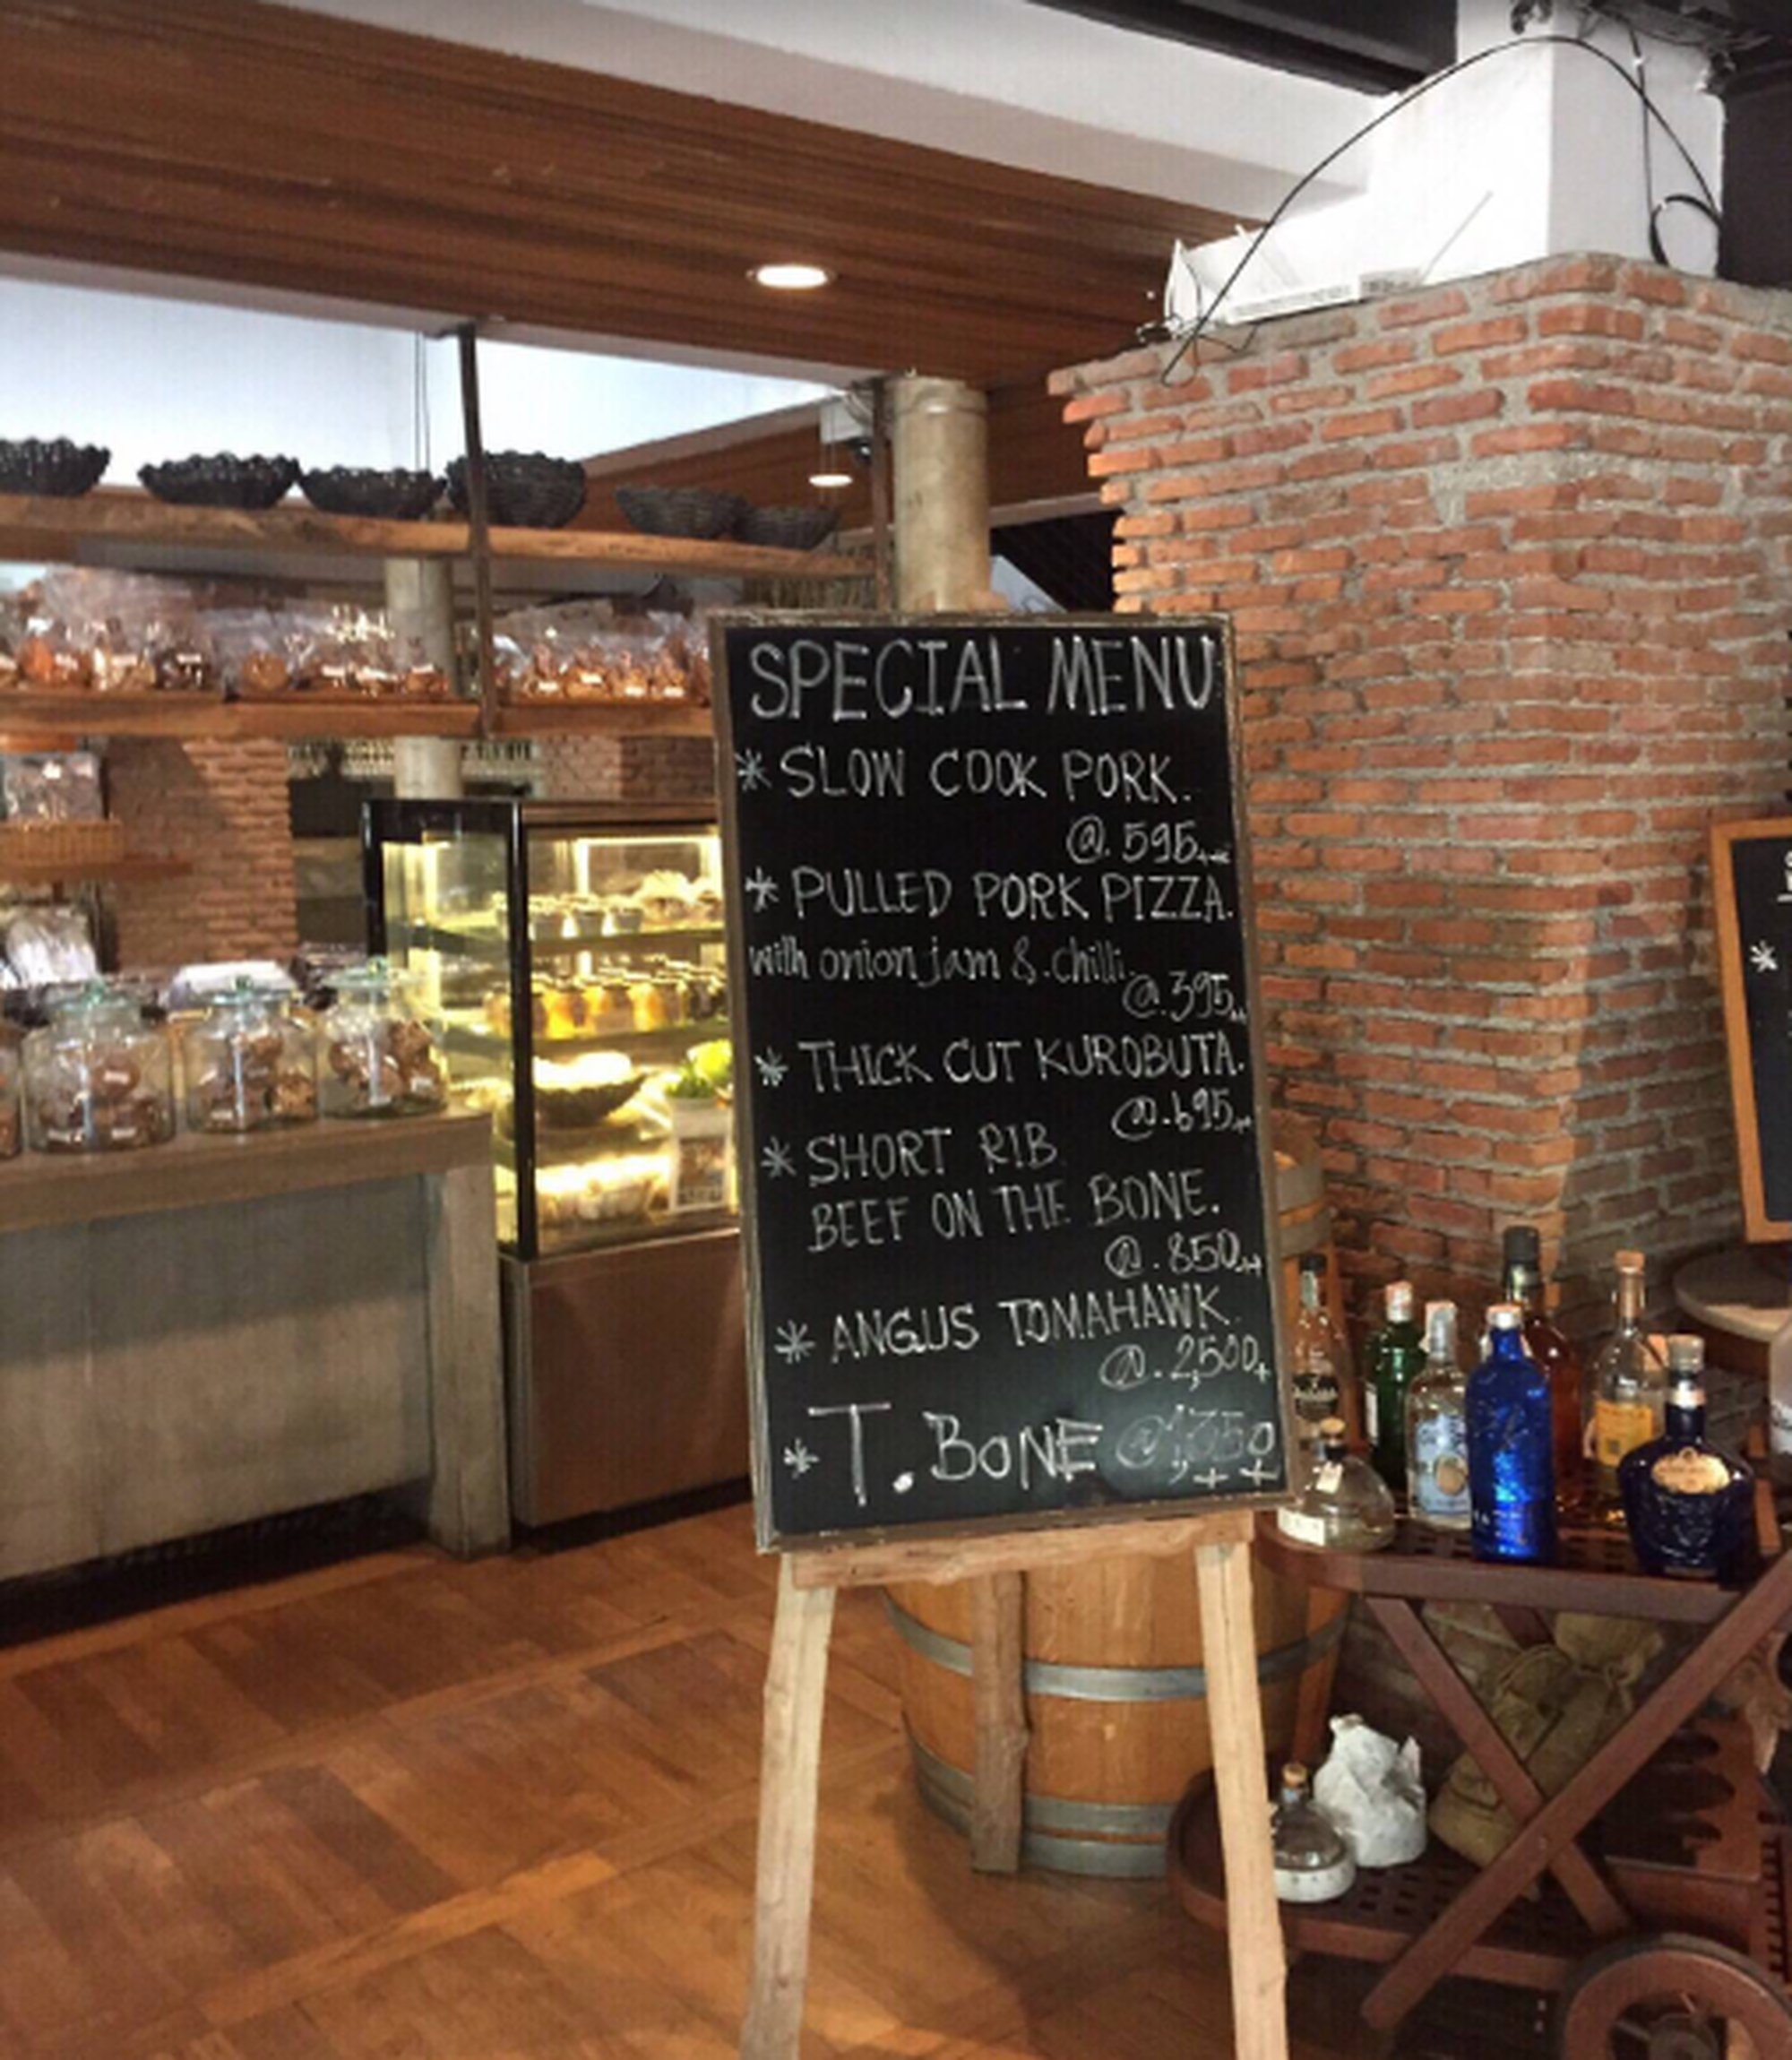 SPECIAL MENU
* SLOW COOK PORK.
@. 595++
* PULLED PORK PIZZA.
with onion jam & chilli.
@.395++
* THICK CUT KUROBUTA.
@.695++
* SHORT RIB
BEEF ON THE BONE.
@.850++
* ANGUS TOMAHAWK.
@.2,500+
* T. BONE @1,350
++